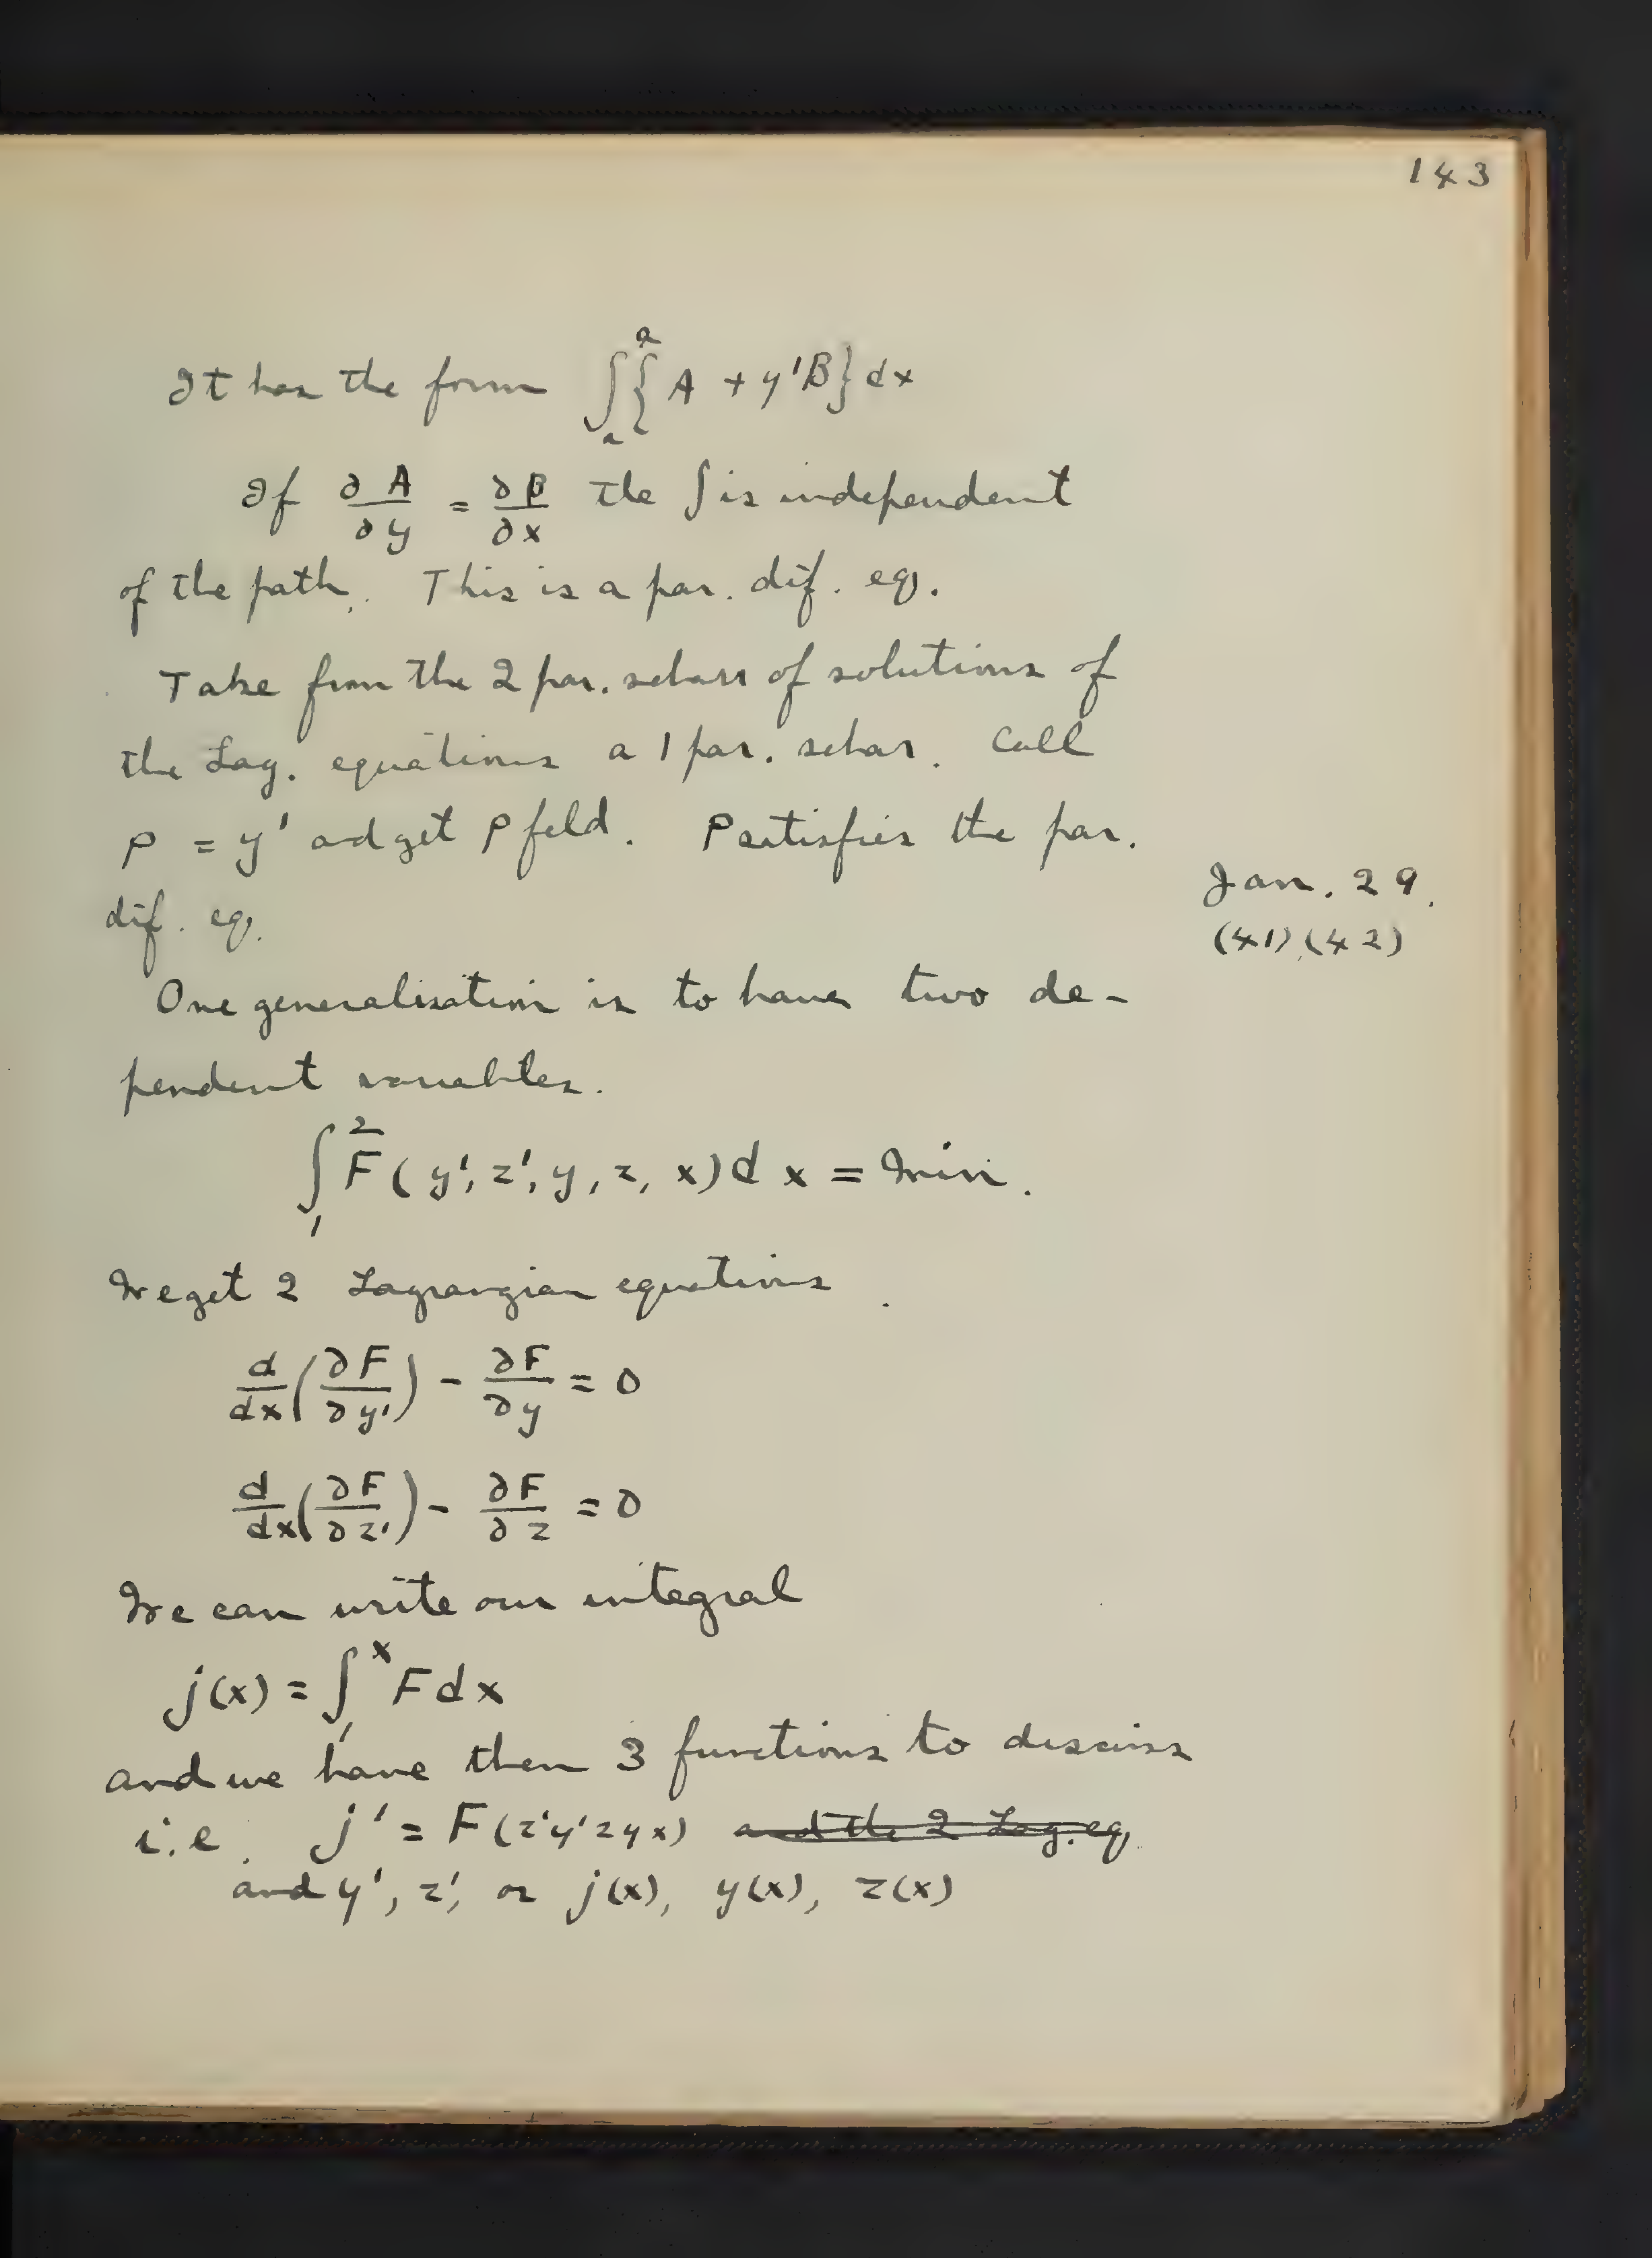 143
It has the form ∫ₐᵃ {A + y'B} dx
If ∂A/∂y = ∂B/∂x the ∫ is independent
of the path. This is a par. dif. eq.
Take from the 2 par. schaar of solutions of
the Lag. equations a 1 par. schar. Call
p = y' and get p feld. P satisfies the par.
dif. eq.
Jan. 29.
(41), (42)
One generalisation is to have two de-
pendent variables.
∫₁² F(y', z', y, z, x) dx = Min.
We get 2 Lagrangian equations.
d/dx (∂F/∂y') - ∂F/∂y = 0
d/dx (∂F/∂z') - ∂F/∂z = 0
We can write our integral
j(x) = ∫₁ˣ F dx
and we have then 3 functions to discuss
i.e. j' = F(z'y'zyx) and the 2 Lag. eq.
and y', z', or j(x), y(x), z(x)